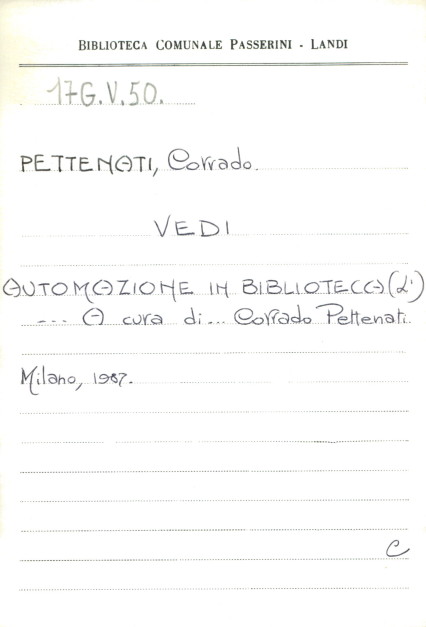 BIBLIOTECA COMUNALE PASSERINI - LANDI
17G.V.50.
PETTENATI, Corrado.
VEDI
AUTOMAZIONE IN BIBLIOTECA (L')
---- A cura di... Corrado Pettenati.
Milano, 1987.
C